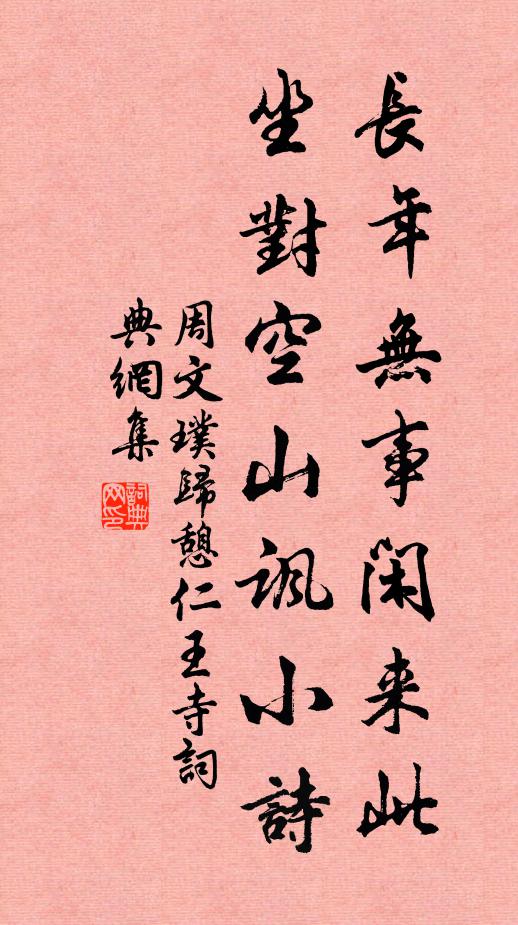 長年無事閑来此
坐對空山諷小詩
周文璞歸憩仁王寺詞
典網集
詞典
网印